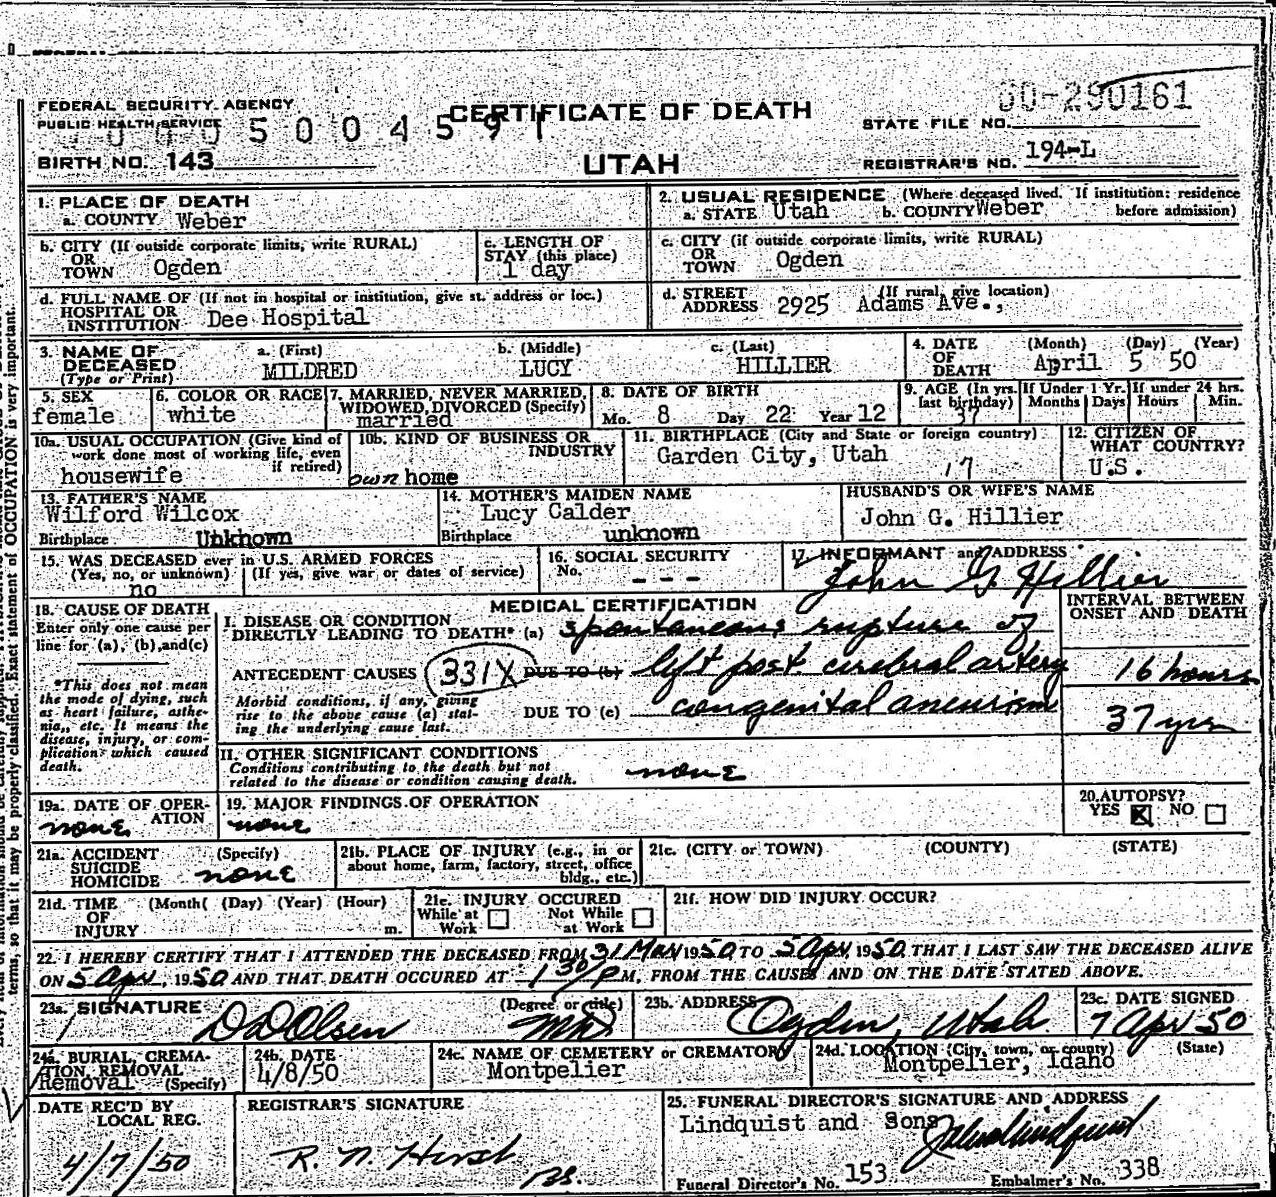 FEDERAL SECURITY AGENCY
PUBLIC HEALTH SERVICE
BIRTH NO. 143
CERTIFICATE OF DEATH
UTAH
STATE FILE NO. 50-290161
REGISTRAR'S NO. 194-L
1. PLACE OF DEATH
a. COUNTY Weber
2. USUAL RESIDENCE (Where deceased lived. If institution: residence before admission)
a. STATE Utah b. COUNTY Weber
b. CITY (If outside corporate limits, write RURAL) OR TOWN Ogden
c. LENGTH OF STAY (this place) 1 day
c. CITY (if outside corporate limits, write RURAL) OR TOWN Ogden
d. FULL NAME OF (If not in hospital or institution, give st. address or loc.) HOSPITAL OR INSTITUTION Dee Hospital
d. STREET ADDRESS (If rural, give location) 2925 Adams Ave.,
3. NAME OF DECEASED (Type or Print) a. (First) MILDRED b. (Middle) LUCY c. (Last) HILLIER
4. DATE OF DEATH (Month) (Day) (Year) April 5 50
5. SEX female
6. COLOR OR RACE white
7. MARRIED, NEVER MARRIED, WIDOWED, DIVORCED (Specify) married
8. DATE OF BIRTH Mo. 8 Day 22 Year 12
9. AGE (In yrs. last birthday) 37
If Under 1 Yr. Months Days
If under 24 hrs. Hours Min.
10a. USUAL OCCUPATION (Give kind of work done most of working life, even if retired) housewife
10b. KIND OF BUSINESS OR INDUSTRY own home
11. BIRTHPLACE (City and State or foreign country) Garden City, Utah 17
12. CITIZEN OF WHAT COUNTRY? U.S.
13. FATHER'S NAME Wilford Wilcox
Birthplace Unknown
14. MOTHER'S MAIDEN NAME Lucy Calder
Birthplace unknown
HUSBAND'S OR WIFE'S NAME John G. Hillier
15. WAS DECEASED ever in U.S. ARMED FORCES (Yes, no, or unknown) (If yes, give war or dates of service) no
16. SOCIAL SECURITY No. - - -
17. INFORMANT and ADDRESS John G Hillier
18. CAUSE OF DEATH
Enter only one cause per line for (a), (b), and (c)
*This does not mean the mode of dying, such as heart failure, asthenia, etc. It means the disease, injury, or complication which caused death.
MEDICAL CERTIFICATION
INTERVAL BETWEEN ONSET AND DEATH
I. DISEASE OR CONDITION DIRECTLY LEADING TO DEATH* (a) spontaneous rupture of
ANTECEDENT CAUSES 331X DUE TO (b) left post cerebral artery 16 hours
Morbid conditions, if any, giving rise to the above cause (a) stating the underlying cause last.
DUE TO (c) congenital aneurism 37 yrs
II. OTHER SIGNIFICANT CONDITIONS
Conditions contributing to the death but not related to the disease or condition causing death. none
19a. DATE OF OPERATION none
19. MAJOR FINDINGS OF OPERATION none
20. AUTOPSY? YES NO
21a. ACCIDENT SUICIDE HOMICIDE (Specify) none
21b. PLACE OF INJURY (e.g., in or about home, farm, factory, street, office bldg., etc.)
21c. (CITY or TOWN) (COUNTY) (STATE)
21d. TIME OF INJURY (Month( (Day) (Year) (Hour) m.
21e. INJURY OCCURED While at Work Not While at Work
21f. HOW DID INJURY OCCUR?
22. I HEREBY CERTIFY THAT I ATTENDED THE DECEASED FROM 31 Mar 1950 TO 5 Apr, 1950, THAT I LAST SAW THE DECEASED ALIVE
ON 5 Apr, 1950 AND THAT DEATH OCCURED AT 1 30/PM, FROM THE CAUSES AND ON THE DATE STATED ABOVE.
23a. SIGNATURE D D Olsen (Degree or title) MD
23b. ADDRESS Ogden, Utah
23c. DATE SIGNED 7 Apr 50
24a. BURIAL, CREMATION, REMOVAL (Specify) Removal
24b. DATE 4/8/50
24c. NAME OF CEMETERY or CREMATORY Montpelier
24d. LOCATION (City, town, or county) (State) Montpelier, Idaho
DATE REC'D BY LOCAL REG. 4/7/50
REGISTRAR'S SIGNATURE R. N. Hirst
25. FUNERAL DIRECTOR'S SIGNATURE AND ADDRESS
Lindquist and Sons
Funeral Director's No. 153 Embalmer's No. 338